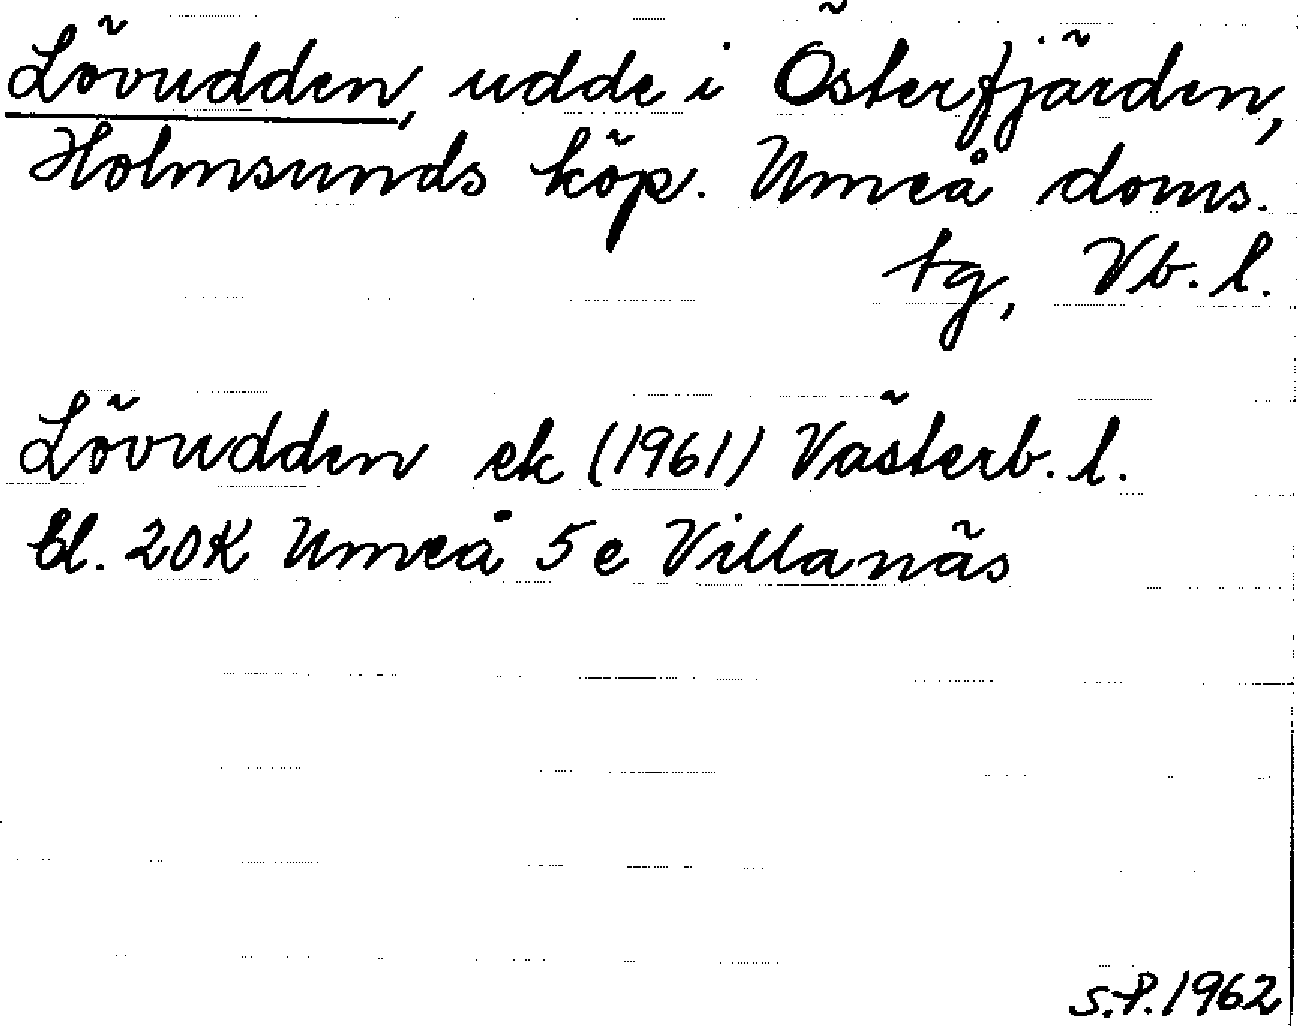 Lövudden, udde i Österfjärden,
Holmsunds köp. Umeå doms.
tg, Vb. l.
Lövudden ek (1961) Västerb. l.
bl. 20K Umeå 5e Villanäs
S.P. 1962